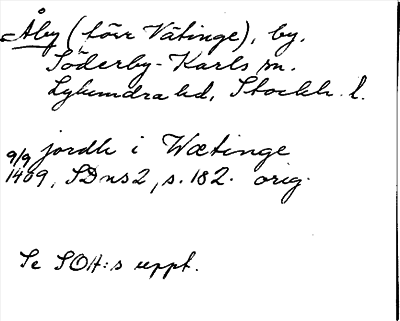 Åby (förr Vätinge), by.
Söderby-Karls sn.
Lyhundra hd, Stockh. l.
jordh i Wætinge
9/9 1409, SDns2, s. 182. orig.
Se SOH:s uppt.